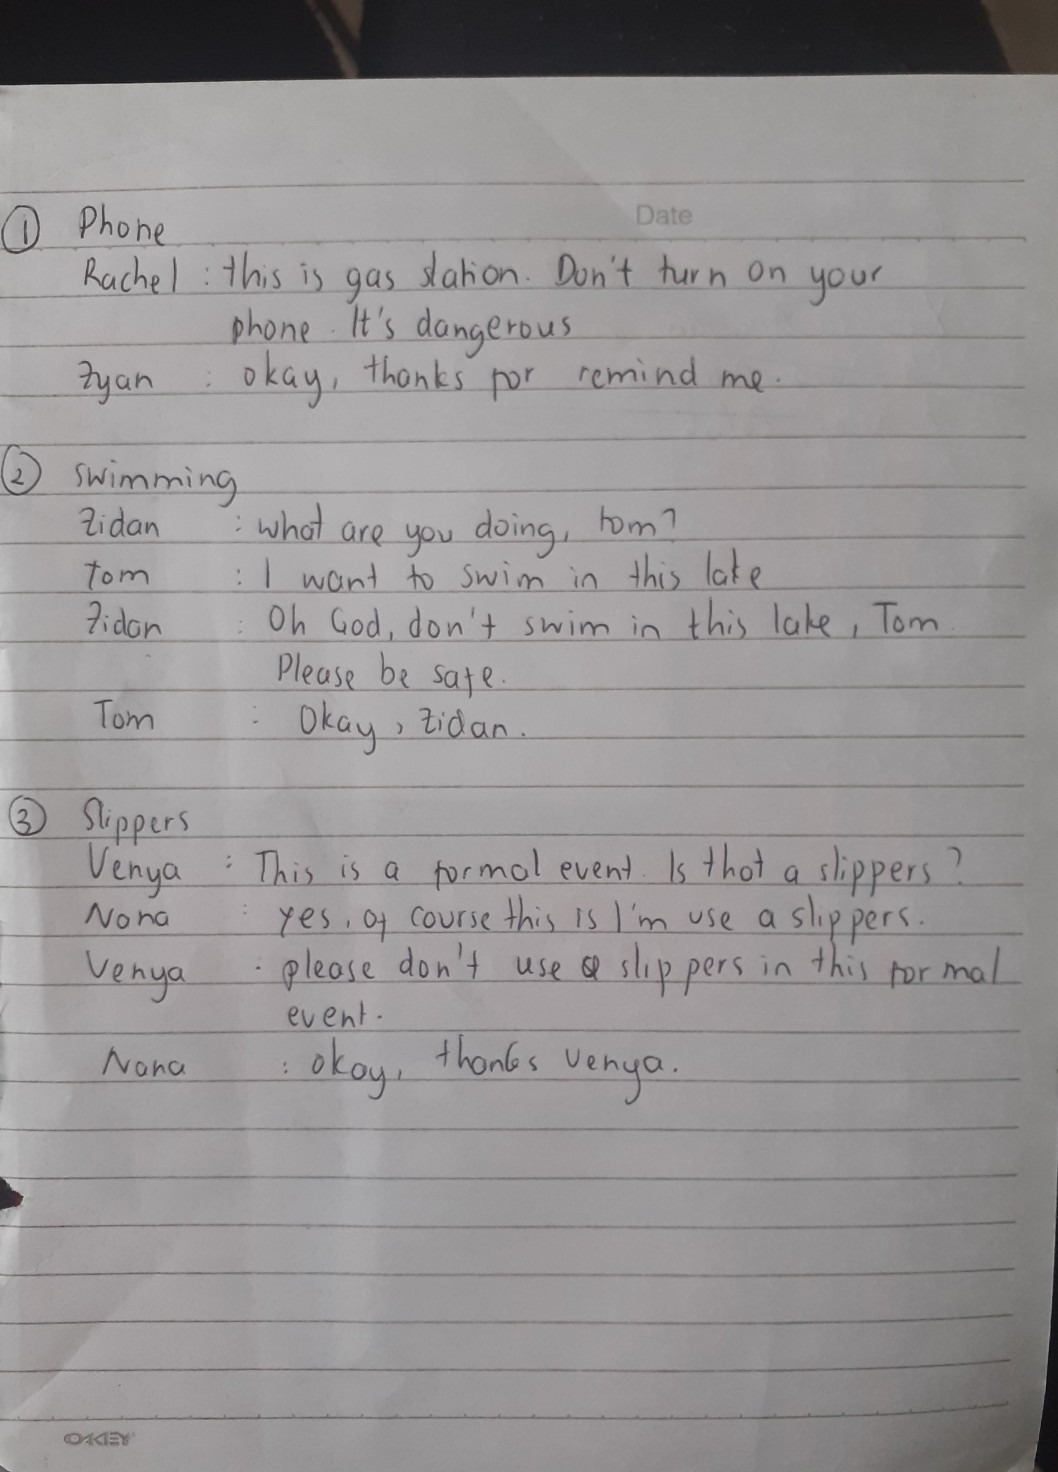 Date
① Phone
Rachel : this is gas station. Don't turn on your
phone. It's dangerous
Zyan : okay, thanks for remind me.
② swimming
Zidan : what are you doing, tom?
Tom : I want to swim in this lake
Zidan : Oh God, don't swim in this lake, Tom
Please be safe.
Tom : Okay, Zidan.
③ Slippers
Venya : This is a formal event. Is that a slippers?
Nona : yes, of course this is I'm use a slippers.
Venya : please don't use a slippers in this formal
event.
Nona : okay, thanks Venya.
OAKEY